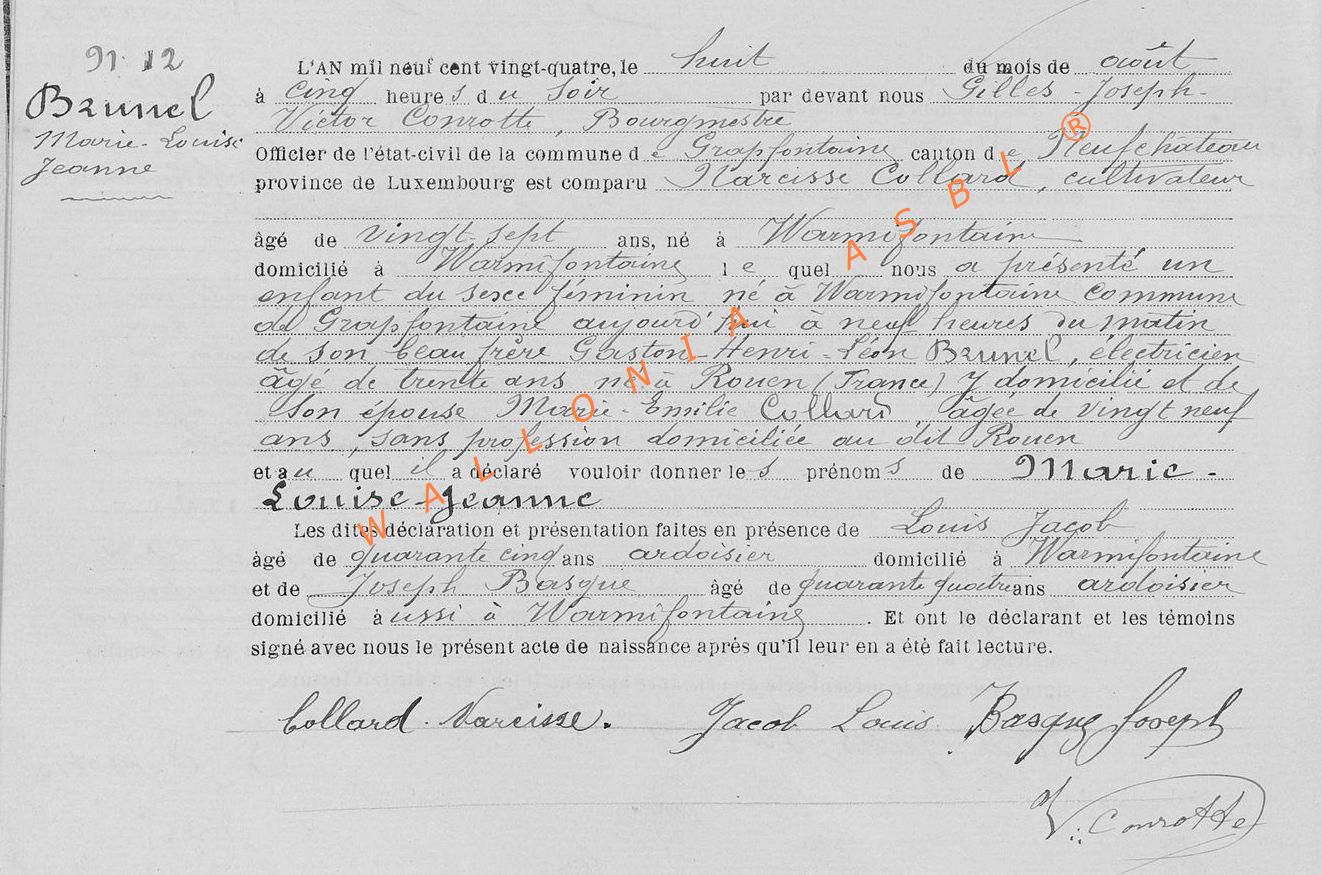 91 12
Brunel
Marie-Louise
Jeanne
L'AN mil neuf cent vingt-quatre, le huit du mois de août
à cinq heures du soir par devant nous Gilles-Joseph-
Victor Conrotte, Bourgmestre
Officier de l'état-civil de la commune de Grapfontaine canton de Neufchâteau
province de Luxembourg est comparu Narcisse Collard, cultivateur
âgé de vingt sept ans, né à Warmifontaine
domicilié à Warmifontaine lequel nous a présenté un
enfant du sexe féminin né à Warmifontaine commune
de Grapfontaine aujourd'hui à neuf heures du matin
de son beau frère Gaston-Henri-Léon Brunel, électricien
âgé de trente ans né à Rouen (France) y domicilié et de
son épouse Marie-Emilie Collard âgée de vingt neuf
ans, sans profession domiciliée au dit Rouen
et au quel il a déclaré vouloir donner les prénoms de Marie-
Louise-Jeanne
Les dites déclaration et présentation faites en présence de Louis Jacob
âgé de quarante cinq ans ardoisier domicilié à Warmifontaine
et de Joseph Basque âgé de quarante quatre ans ardoisier
domicilié aussi à Warmifontaine. Et ont le déclarant et les témoins
signé avec nous le présent acte de naissance après qu'il leur en a été fait lecture.
Collard Narcisse. Jacob Louis Basque Joseph
V. Conrotte
WALLONIA ASBL ®